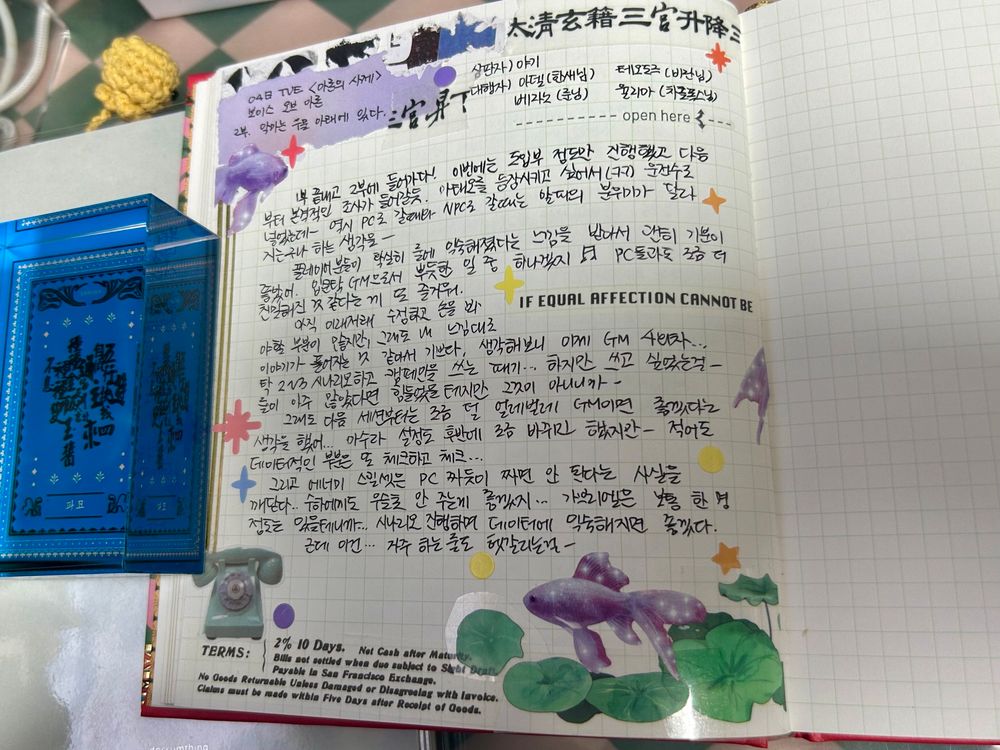 太清玄籍三官升降三
048 TUE <아론의 사제>
보이스 오브 아론
2부. 악마는 우물 아래에 있다.
심판자) 아기
대행자) 아델 (한새님) 테오도즈 (바란님)
베라노 (준님) 율리아
open here
1부 끝내고 2부에 들어가다! 이번에는 도입부 정도만 진행했고 다음
부터 본격적인 조사가 들어갈듯. 아태오를 등장시키고 싶어서 (ㅋㅋ) 운전수로
넣었는데— 역시 PC로 갈때와 NPC로 갈때는 알파의 분위기가 달라
지는구나 하는 생각을—
플레이어분들이 확실히 룰에 익숙해졌다는 느낌을 받아서 괜히 기분이
좋았어. 입문탁 GM으로서 뿌듯한 일 중 하나겠지 PC들과도 조금 더
친밀해진 것 같다는 게 또 즐거워.
아직 이래저래 수정하고 손을 봐
IF EQUAL AFFECTION CANNOT BE
야할 부분이 있지만, 그래도 내 느낌대로
이야기가 풀어지는 것 같아서 기쁘다. 생각해보니 이제 GM 4번차...
탁 2~3 시나리오하고 캠페인을 쓰는 때기... 하지만 쓰고 싶었는걸—
룰이 아주 많았다면 힘들었을 테지만 그것이 아니니까—
그래도 다음 세션부터는 조금 덜 얼레벌레 GM이면 좋겠다는
생각을 했어... 아수라 설정도 후반에 조금 바뀌긴 했지만— 적어도
데이터적인 부분은 또 체크하고 체크...
그리고 에너미 스킬셋은 PC 짜듯이 짜면 안 된다는 사실을
깨닫다.. 수하에게도 우슬초 안 주는게 좋겠지... 가브리엘은 보통 한 명
정도는 있을테니까.. 시나리오 진행하며 데이터에 익숙해지면 좋겠다.
근데 이건... 자주 하는 룰도 헷갈리는걸—
파묘
TERMS: 2% 10 Days. Net Cash after Maturity.
Bills not settled when due subject to Sight Draft.
Payable in San Francisco Exchange.
No Goods Returnable Unless Damaged or Disagreeing with Invoice.
Claims must be made within Five Days after Receipt of Goods.